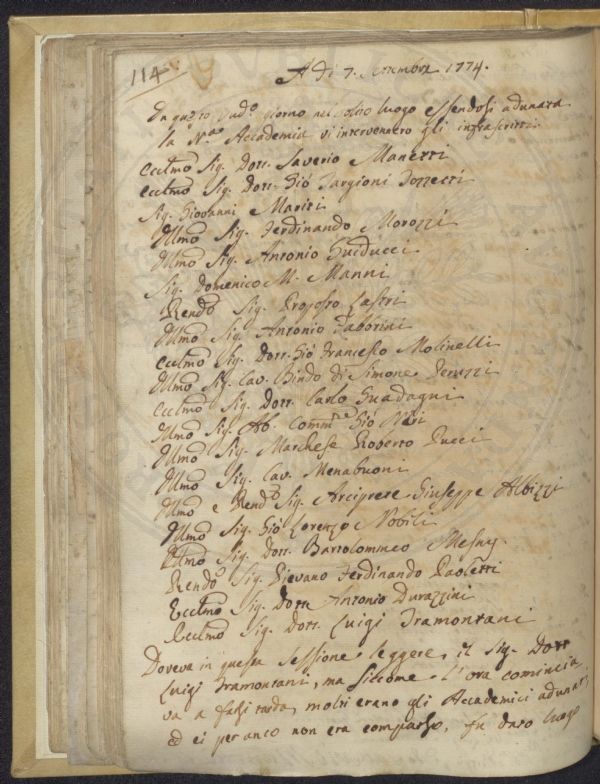 114
A dì 7. Settembre 1774.
In questo sud.º giorno nel solito luogo essendosi adunata
la Nrãa Accademia vi intervennero gli infrascritti
Eccłmo Sig. Dott. Saverio Manetti
Eccłmo Sig. Dott. Giõ Targioni Tozzetti
Sig. Giovanni Mariti
Illmo Sig. Ferdinando Morozzi
Illmo Sig. Antonio Guiducci
Sig. Domenico M. Manni
Rendo Sig. Proposto Lastri
Illmo Sig. Antonio Fabbrini
Eccłmo Sig. Dott. Giõ Francesco Molinelli
Illmo Sig. Cav. Bindo di Simone Peruzzi
Eccłmo Sig. Dott. Carlo Guadagni
Illmo Sig. Ab. Commre Giõ Neri
Illmo Sig. Marchese Roberto Pucci
Illmo Sig. Cav. Menabuoni
Illmo e Rendo Sig. Arciprete Giuseppe Albizzi
Illmo Sig. Giõ Lorenzo Nobili
Eccłmo Sig. Dott. Bartolommeo Mesny
Rendo Sig. Pievano Ferdinando Paoletti
Eccłmo Sig. Dott. Antonio Durazzini
Eccłmo Sig. Dott. Luigi Tramontani
Doveva in questa sessione leggere, il Sig. Dott
Luigi Tramontani, ma siccome l'ora comincia
va a farsi tarda, molti erano gli Accademici adunati,
ed ei per anco non era comparso, fu dato luogo